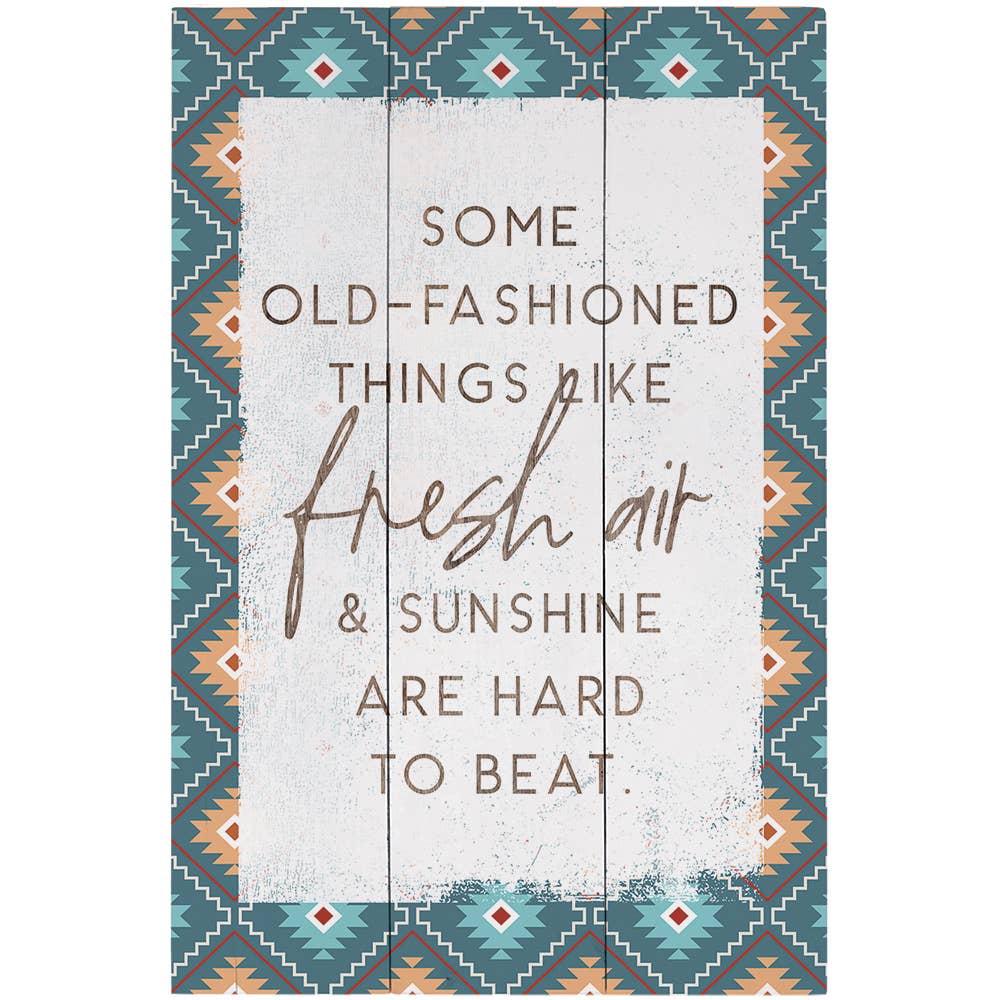 SOME
OLD-FASHIONED
THINGS LIKE
fresh air
& SUNSHINE
ARE HARD
TO BEAT.